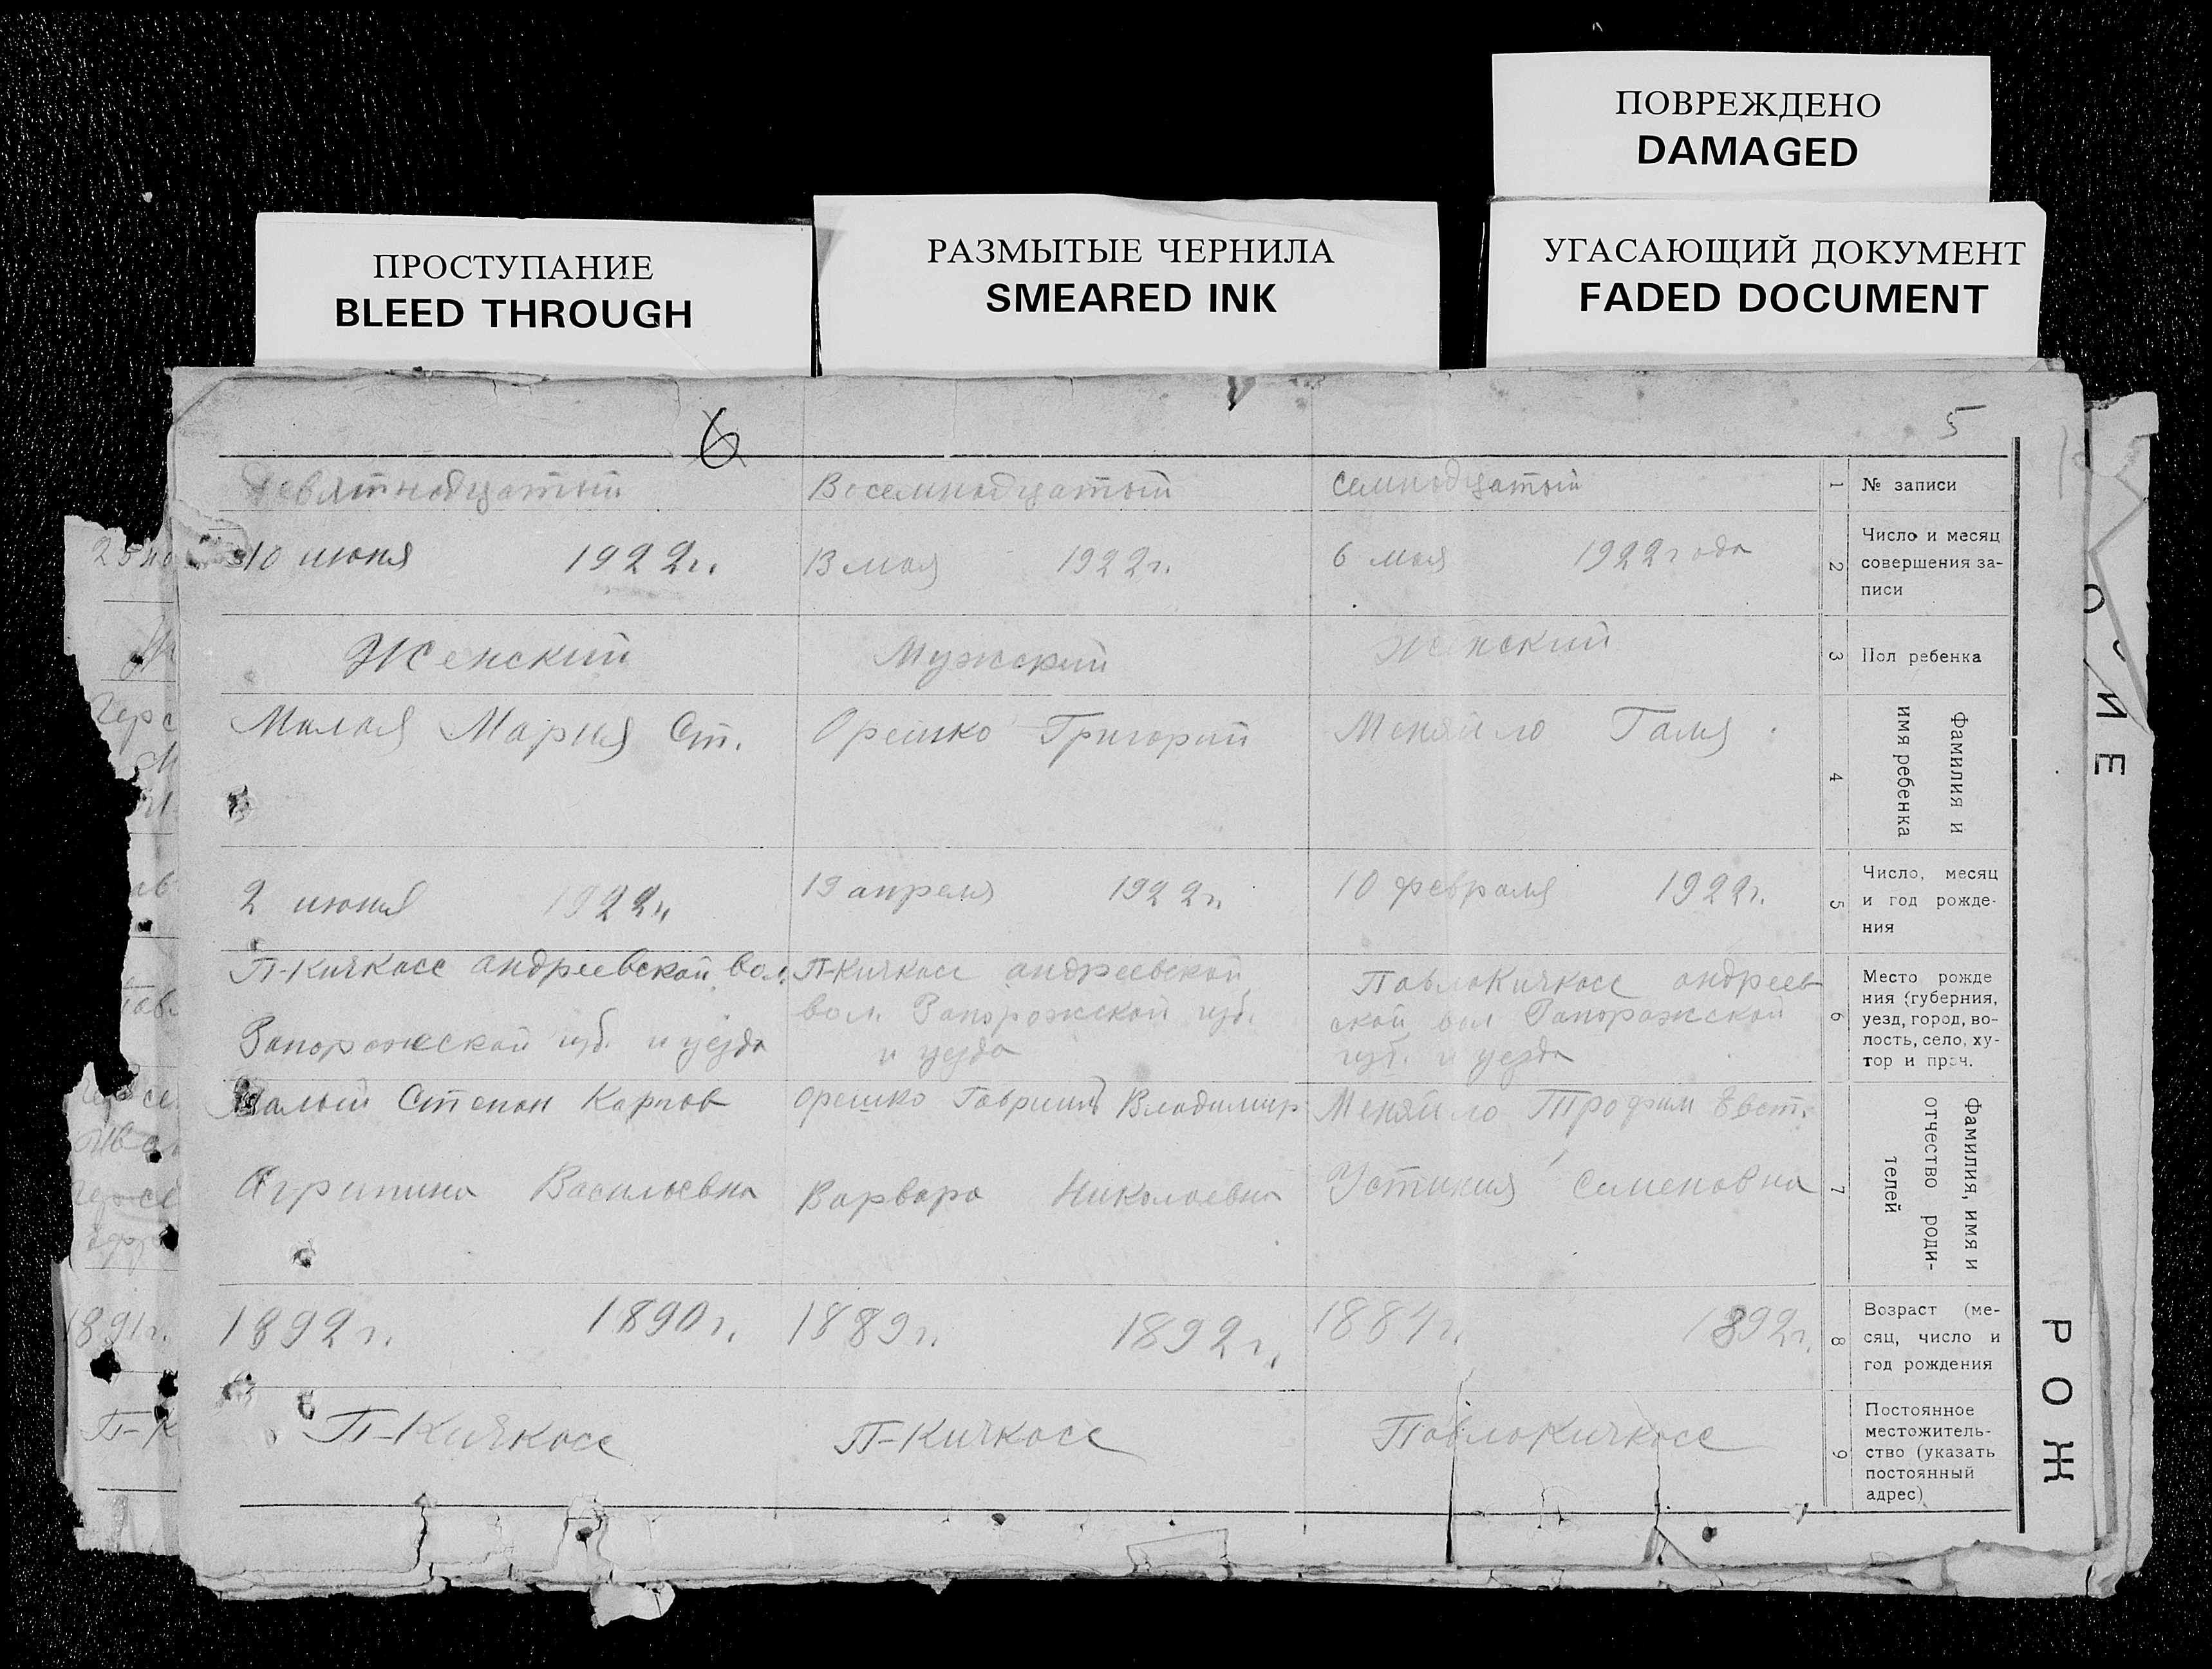 ПОВРЕЖДЕНО
DAMAGED
ПРОСТУПАНИЕ
BLEED THROUGH
РАЗМЫТЫЕ ЧЕРНИЛА
SMEARED INK
УГАСАЮЩИЙ ДОКУМЕНТ
FADED DOCUMENT
6
5
Девятнадцатый Восемнадцатый Семнадцатый 1 № записи
10 июня 1922г. 13 мая 1922г. 6 мая 1922 года 2 Число и месяц
совершения за-
писи
Женский Мужский Женский 3 Пол ребенка
Малая Мария Ст. Орешко Григорий Меняйло Галя 4 Фамилия и
имя ребенка
2 июня 1922г. 19 апреля 1922г. 10 февраля 1922г. 5 Число, месяц
и год рожде-
ния
П-Кичкасе андреевской вол. П-Кичкасе андреевской ПавлоКичкасе андреев
вол. Запорожской губ. ской вол Запорожской
Запорожской губ. и уезда и уезда губ. и уезда
6 Место рожде
ния (губерния,
уезд, город, во-
лость, село, ху-
тор и проч.
Малый Степан Карпов Орешко Гавриил Владимир Меняйло Трофим Евст.
Агрипина Васильевна Варвара Николаевна Устиния Семеновна
7 Фамилия, имя и
отчество роди-
телей
1892г. 1890г. 1889г. 1892г. 1884г. 1892г. 8 Возраст (ме-
сяц, число и
год рождения
П-Кичкасе П-Кичкасе ПавлоКичкасе 9 Постоянное
местожитель-
ство (указать
постоянный
адрес)
РОЖ
ИЕ
1891г.
П-К